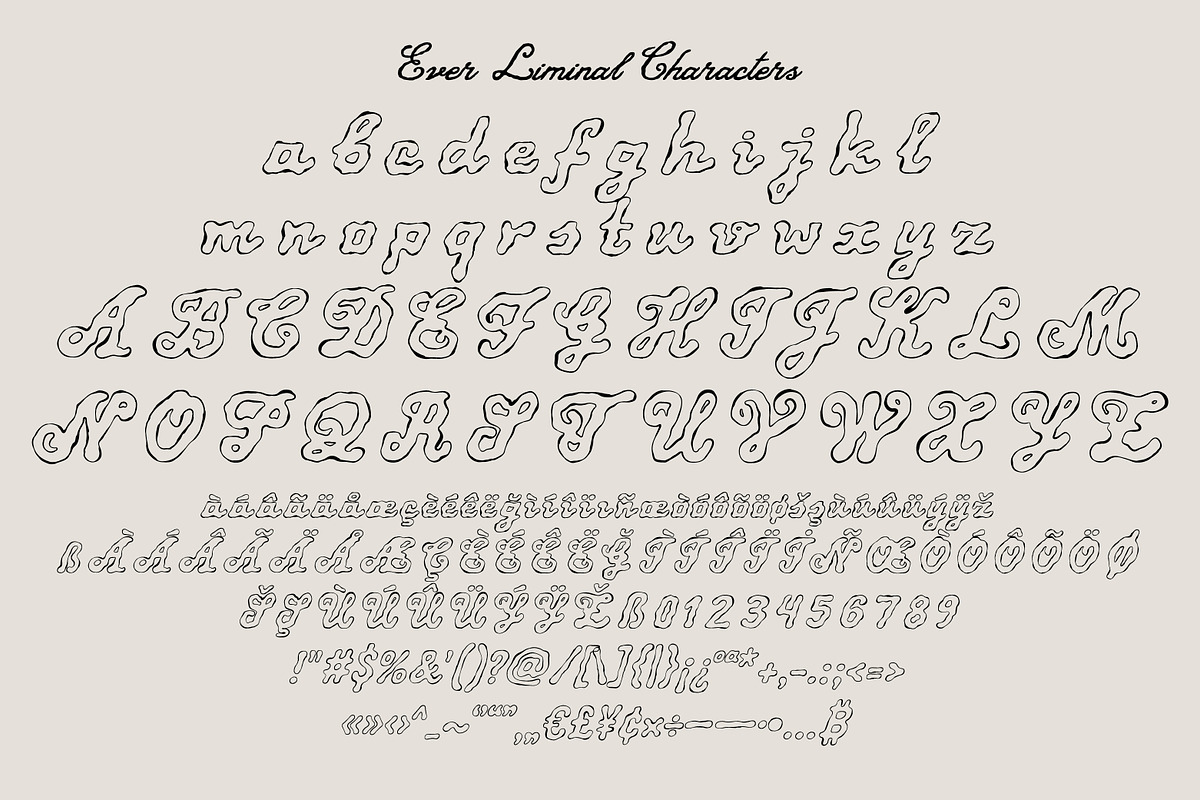 Ever Liminal Characters
a b c d e f g h i j k l
m n o p q r s t u v w x y z
A B C D E F G H I J K L M
N O P Q R S T U V W X Y Z
àáâãäåæçèéêëğìíîïıñœòóôõöøšşùúûüýÿž
ßÀÁÂÃÄÅÆÇÈÉÊËĞÌÍÎÏİÑŒÒÓÔÕÖØ
ŠŞÙÚÛÜÝŸŽẞ0123456789
!"#$%&'()?@/[\]{|}¡¿ºª*+,-.:;<=>
«»‹›^_~“”‘’‚„€£¥¢×÷—–·•…₿